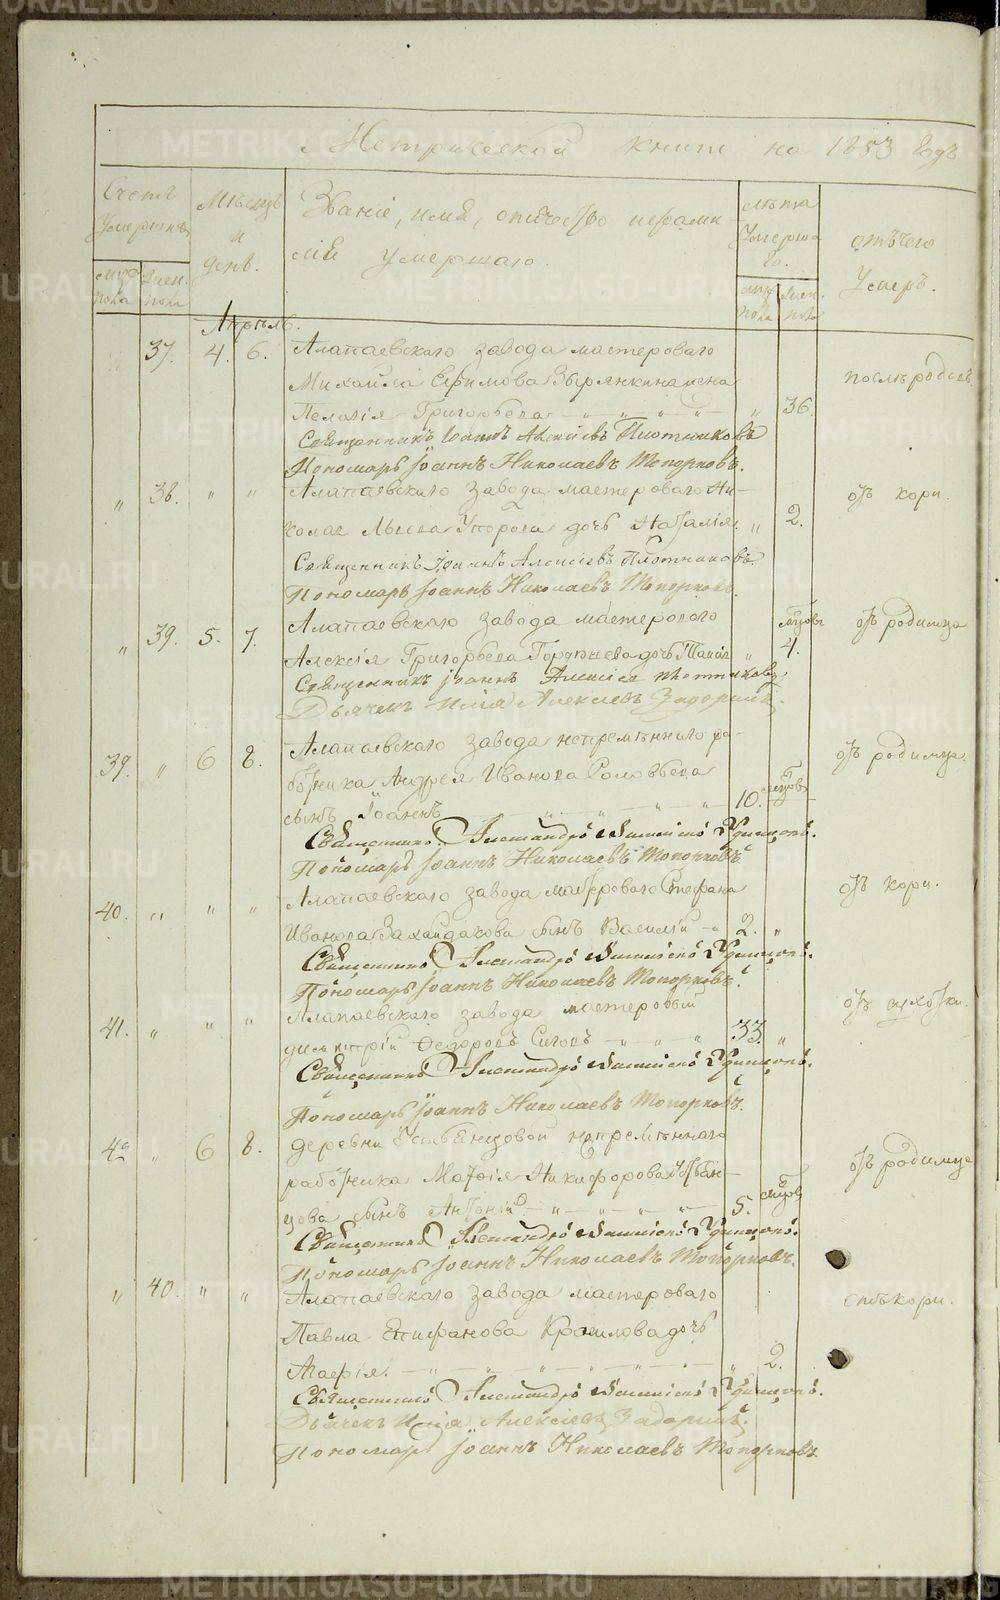 Метрической книги на 1853 годъ
Счетъ Умершихъ
Мѣсяцъ и день.
Званіе, имя, отчество и фами-
лія умершаго.
лѣта Умерша го.
отъ чего Умеръ.
муж. пола
жен. пола
муж. пола
жен. пола
Апрѣль.
37. 4. 6. Алапаевскаго завода мастероваго
Михаила Ефимова Зырянкина жена послѣ родовъ
Пелагія Григорьева " 36.
Священникъ Іоаннъ Алексіевъ Плотниковъ
Пономарь Іоаннъ Николаевъ Топорковъ.
" 38. " " Алапаевскаго завода мастероваго Ни- отъ кори.
колая Львова Упорова дочь Наталія. " 2.
Священникъ Іоаннъ Алексіевъ Плотниковъ
Пономарь Іоаннъ Николаевъ Топорковъ.
" 39. 5. 7. Алапаевскаго завода мастероваго мѣсяцовъ отъ родимца
Алексія Григорьева дочь " 4.
Священникъ Іоаннъ Алексіевъ Плотниковъ
Дьячекъ Илія Алексіевъ Задоринъ.
39. " 6 8. Алапаевскаго завода непремѣннаго ра- отъ родимца.
ботника Андрея Иванова Соловьева
сынъ Іоаннъ 10.
Священникъ Александръ
Пономарь Іоаннъ Николаевъ Топорковъ.
40. " " " Алапаевскаго завода мастероваго Стефана отъ кори.
Иванова сынъ Василій 2. "
Священникъ Александръ
Пономарь Іоаннъ Николаевъ Топорковъ.
41. " " " Алапаевскаго завода мастеровый отъ чахотки.
Димитрій Федоровъ Сиговъ 33. "
Священникъ Александръ
Пономарь Іоаннъ Николаевъ Топорковъ.
42 " 6 8. деревни непремѣннаго отъ родимца
работника Никифорова
сынъ Антоній 5.
Священникъ Александръ
Пономарь Іоаннъ Николаевъ Топорковъ.
" 40. " " Алапаевскаго завода мастероваго отъ кори.
Павла Епифанова дочь
Агафія. " 2.
Священникъ Александръ
Дьячекъ Илія Алексіевъ Задоринъ.
Пономарь Іоаннъ Николаевъ Топорковъ
METRIKI.GASO-URAL.RU